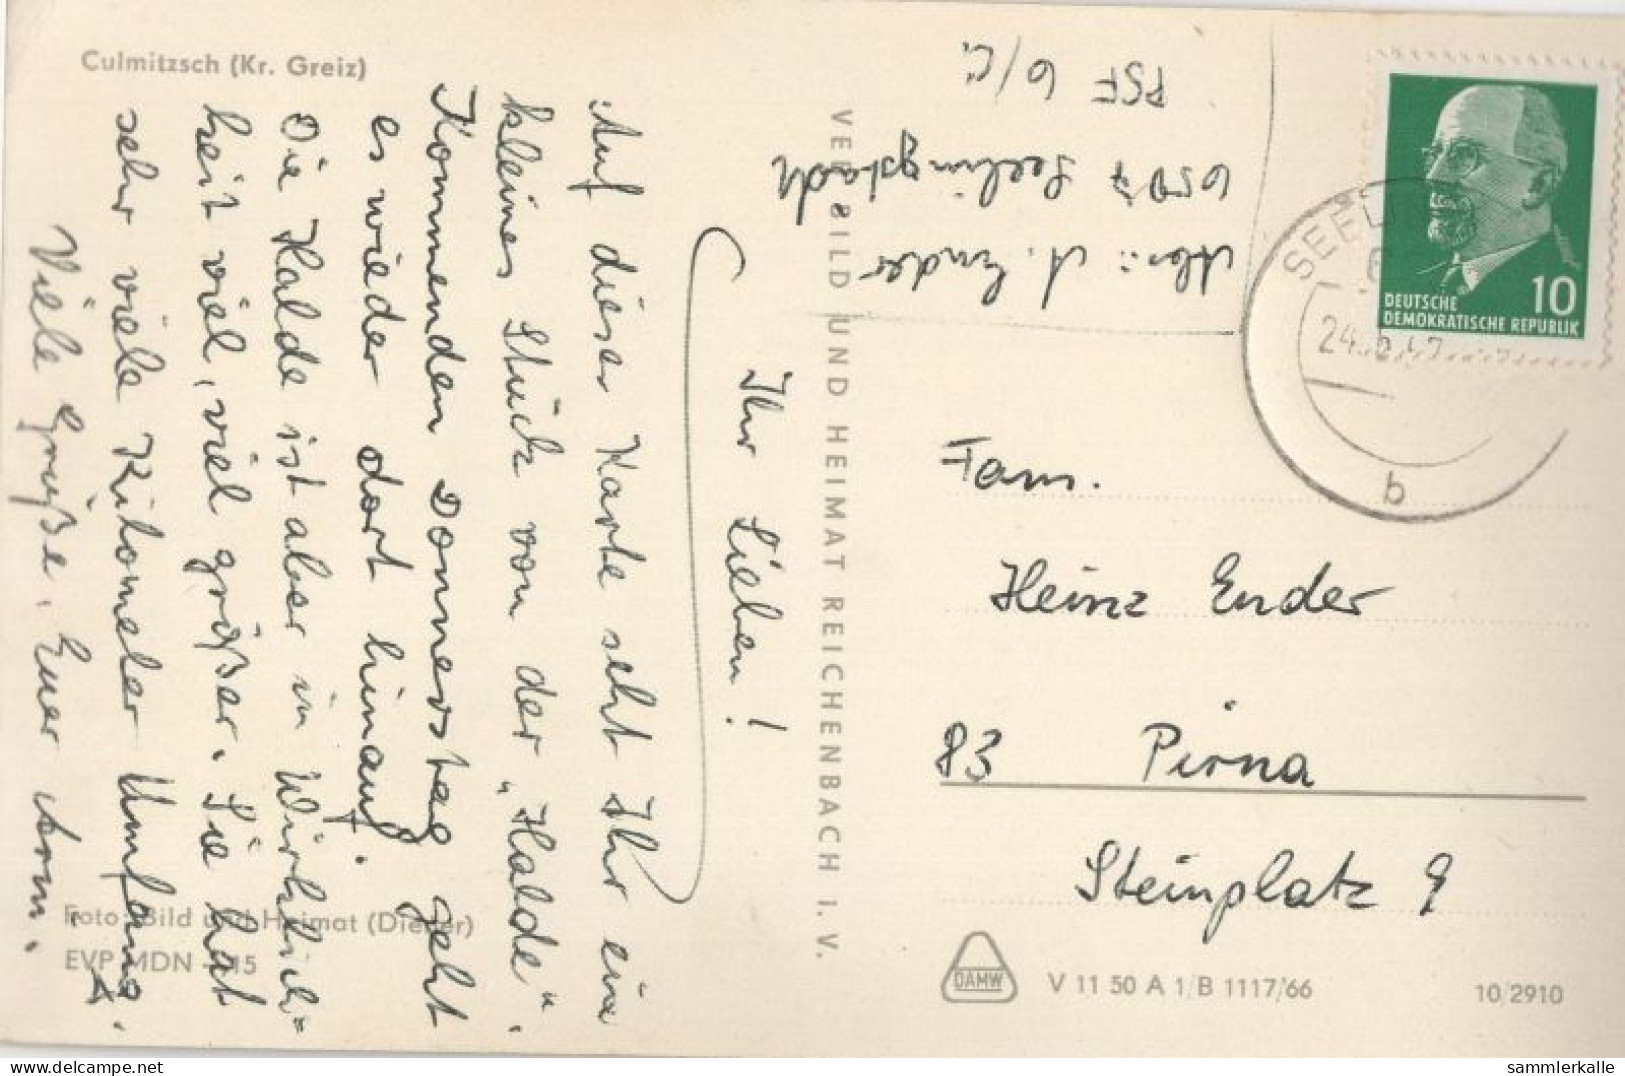 Culmitzsch (Kr. Greiz)
Ihr Lieben!
Auf dieser Karte seht Ihr eine
kleines Stück von der „Halde".
Kommenden Donnerstag geht
es wieder dort hinauf.
Die Halde ist aber in Wirklich=
keit viel, viel größer. Sie hat
sehr viele Kilometer Umfang.
Viele Grüße, Euer
Foto: Bild und Heimat (Dießner)
EVP MDN -,15
VEB BILD UND HEIMAT REICHENBACH I. V.
Abs.: A. Ender
6507 Seelingstädt
PSF 6/C
DEUTSCHE
DEMOKRATISCHE REPUBLIK
10
SEELIN
24.
b
Fam.
Heinz Ender
83 Pirna
Steinplatz 9
DAMW
V 11 50 A 1/B 1117/66
10/2910
sammlerkalle
www.delcampe.net